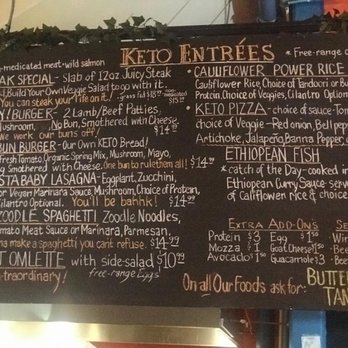 KETO ENTRÉES
-medicated meat • wild salmon
* Free-range
AK SPECIAL - Slab of 12oz Juicy Steak
Build Your Own Veggie Salad to go with it.
You can steak your life on it!
Y! BURGER - 2 Lamb/Beef Patties,
Mushroom, No Bun, Smothered with Cheese.
We work our buns off! $14.99
BUN BURGER - Our OWN KETO Bread!
Fresh Tomato, Organic Spring Mix, Mushroom, Mayo,
Smothered with Cheese. One bun to rule them all! $14.99
STA BABY LASAGNA - Eggplant, Zucchini,
or Vegan Marinara Sauce, Mushroom, Choice of Protein,
Cilantro Optional. You'll be bahhk! $14.99
ZOODLE SPAGHETTI Zoodle Noodles,
Tomato Meat Sauce or Marinara, Parmesan,
na make a spaghetti you can't refuse. $14.99
T OMLETTE with side-salad $10.99
-traordinary! free-range Eggs
• CAULIFLOWER POWER RICE
Cauliflower Rice, Choice of Tandoori or
Protein, Choice of Veggies, Cilantro Option
• KETO PIZZA - choice of sauce - Tom
choice of Veggie - Red onion, Bell pep
Artichoke, Jalapeño, Banna Pepper,
ETHIOPEAN FISH
* catch of the Day - cooked in
Ethiopean Curry Sauce - serve
of Califlower rice & choice
EXTRA ADD-ONS
Protein $3 Egg $1.50 Win
Mozza $1 Goat Cheese $1 Bee
Avocado $1.50 Guacamole $3 Bee
On all Our Foods ask for: BUTTE
TAN